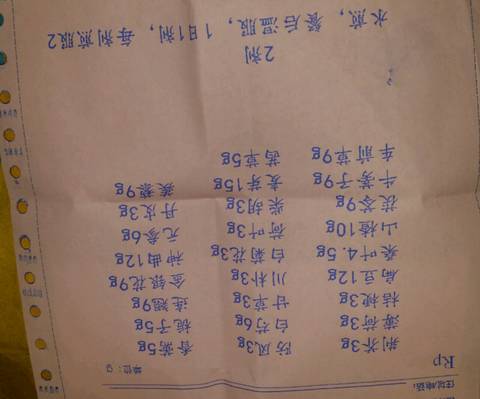 住址/电话:
Rp 单位:g
荆芥3g 防风3g 香薷5g
薄荷3g 白芍6g 栀子5g
桔梗3g 甘草3g 连翘9g
扁豆12g 川朴3g 金银花9g
桑叶4.5g 白菊花3g 神曲12g
山楂10g 荷叶3g 元参6g
茯苓9g 柴胡3g 丹皮3g
牛蒡子9g 麦芽15g 蒺藜9g
车前草9g 茜草5g
2剂
水煎, 餐后温服, 1日1剂, 每剂煎服2